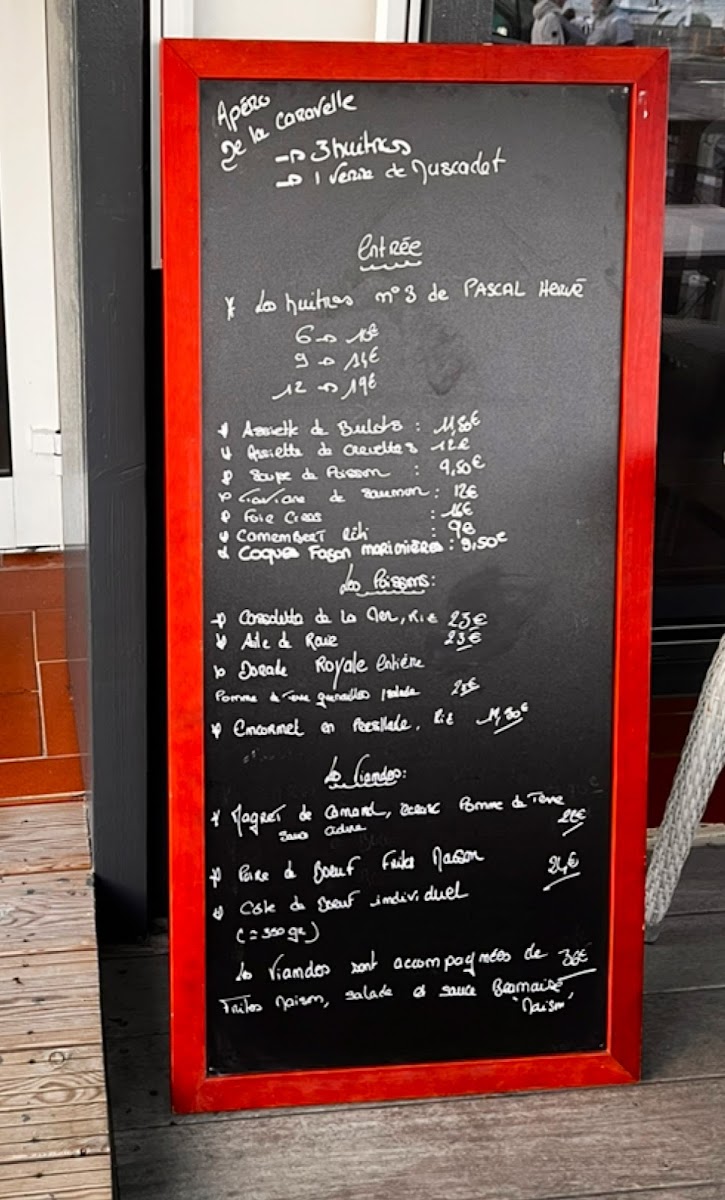 Apéro
De la Caravelle
→ 3 huitres
→ 1 verre de Muscadet
Entrée
* Les huitres n°3 de PASCAL HERVÉ
6 →
9 → 14€
12 → 19€
* Assiette de Bulots : 11,80€
* Assiette de crevettes 12€
* Soupe de Poisson : 9,50€
* de saumon : 12€
* Foie Gras : 16€
* CamemBERT Rôti : 9€
* Coques Façon marinières : 9,50€
Les Poissons :
* Cassolette de la Mer, Riz 23€
* Aile de Raie 23€
* Dorade Royale entière
Pomme de Terre grenailles salade
* Encornet en Persillade, Riz
Les Viandes :
* Magret de Canard, écrasé Pomme de Terre
sauce
* de Boeuf Frites Maison 24€
* Côte de Boeuf individuel
(= 350 gr)
Les Viandes sont accompagnées de
Frites Maison, salade et sauce Bearnaise
"Maison"